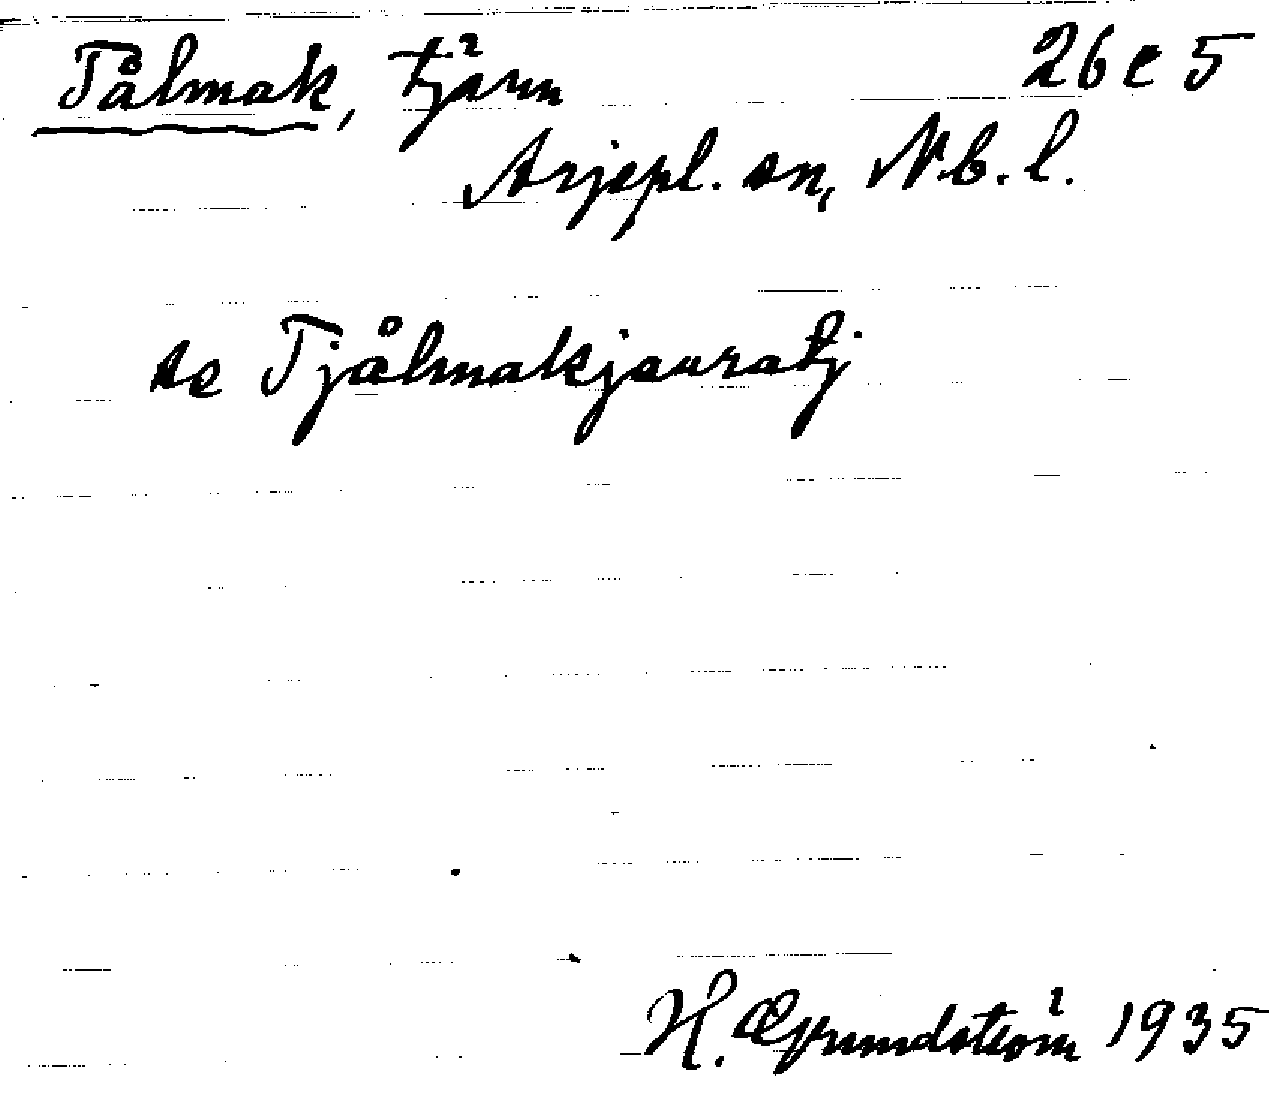 Tålmak, tjärn 26 e 5
Arjepl. sn, N.b.l.
se Tjålmakjauratj
H. Grundström 1935